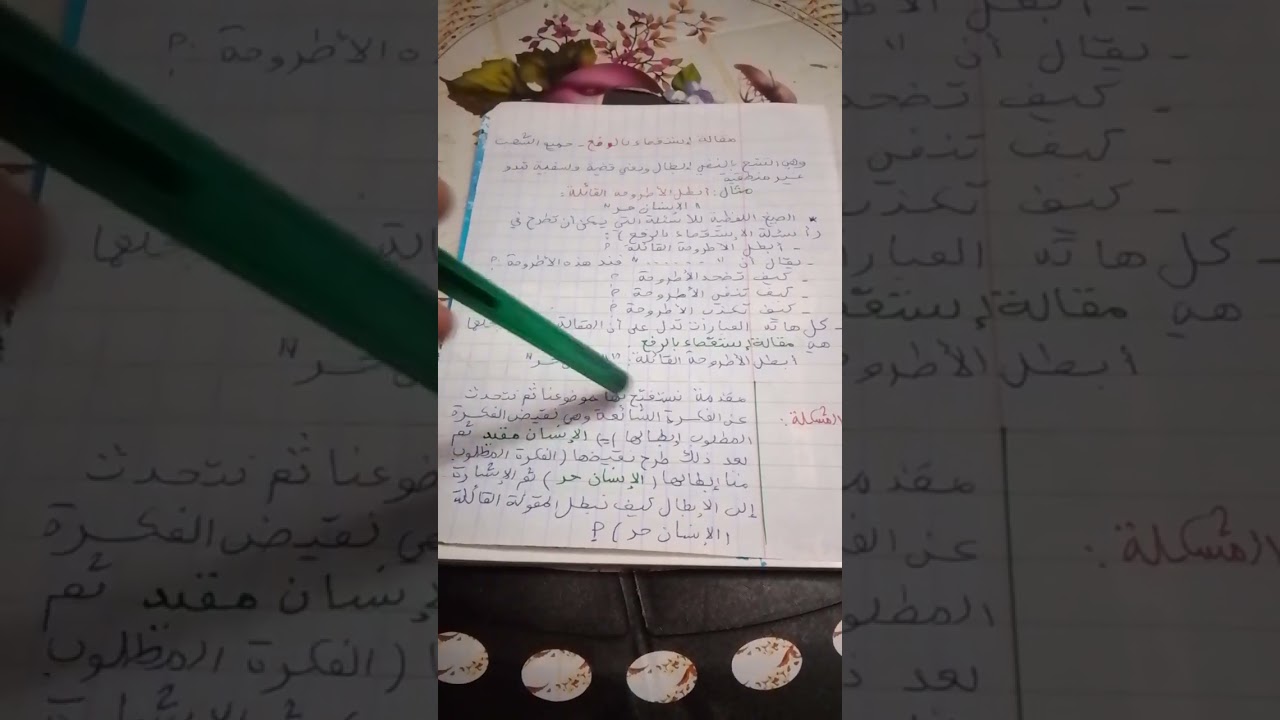 مقالة إستقصاء بالرفع - جميع الشعب
وهي التسرع بالنفي إبطال ونفي قضية فلسفية تبدو
غير منطقية
مثال: أبطل الأطروحة القائلة:
"الإنسان حر"
* الصيغ اللفظية للأسئلة التي يمكن أن تطرح في
(أسئلة الإستقصاء بالرفع):
- أبطل الأطروحة القائلة ؟
- يقال أن "......." فند هذه الأطروحة ؟
- كيف تدحض الأطروحة ؟
- كيف تنفي الأطروحة ؟
- كيف تكذب الأطروحة ؟
- كل هاته العبارات تدل على أن المقالة
هي مقالة إستقصاء بالرفع
أبطل الأطروحة القائلة: حر"
المشكلة:
مقدمة نستفتح بها موضوعنا ثم نتحدث
عن الفكرة الشائعة وهي نقيض الفكرة
المطلوب إبطالها (=) الإنسان مقيد ثم
بعد ذلك طرح نقيضها (الفكرة المطلوب
منا إبطالها (الإنسان حر) ثم الإشارة
إلى الإبطال كيف نبطل المقولة القائلة
(الإنسان حر) ؟